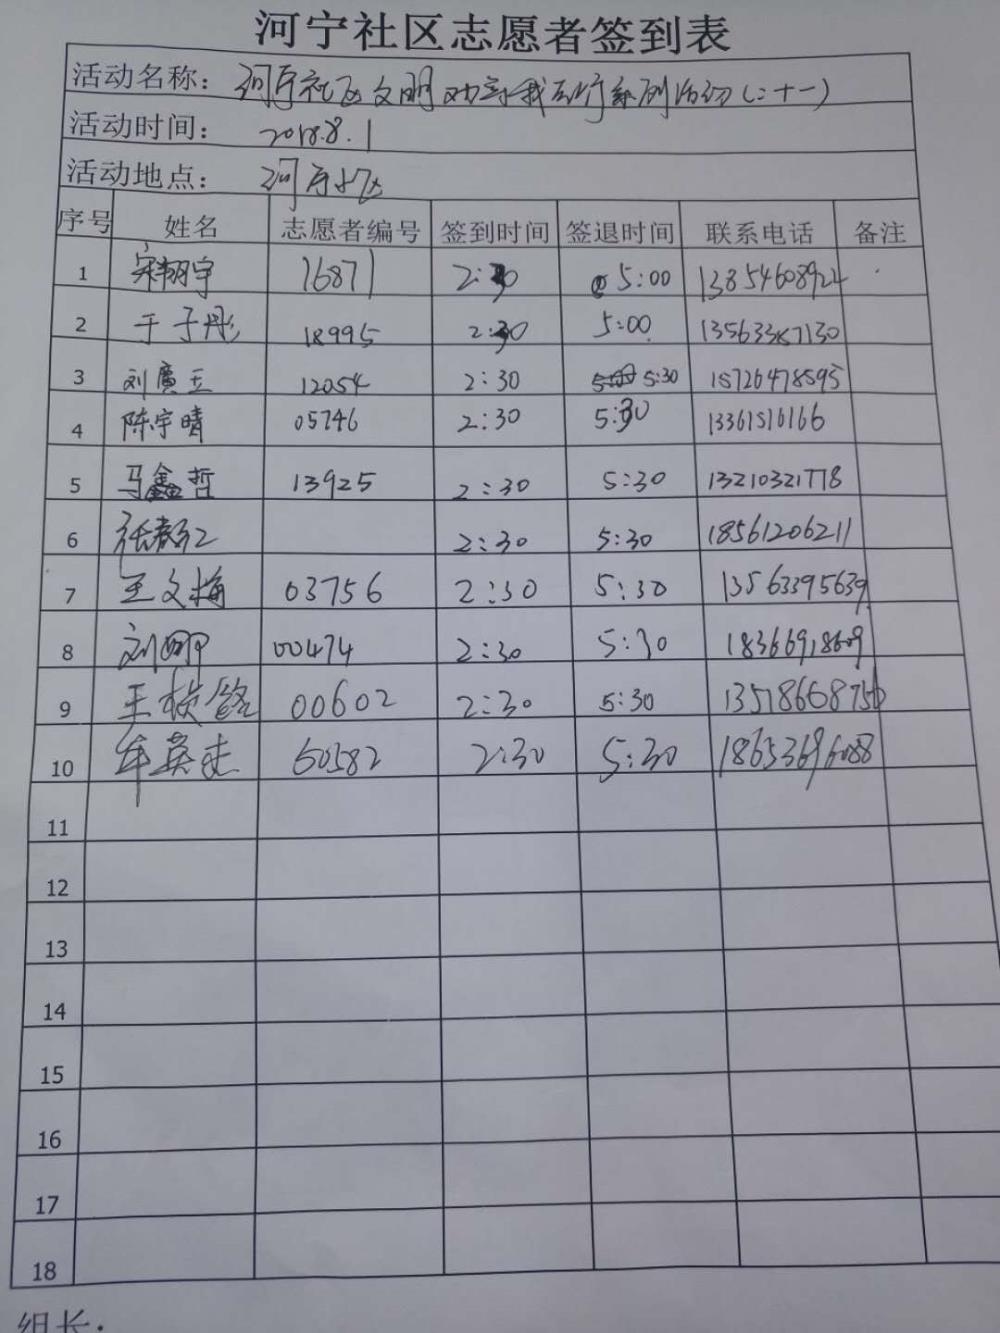 河宁社区志愿者签到表
活动名称：河宁社区文明劝导我先行系列活动（二十一）
活动时间：2018.8.1
活动地点：河宁社区
序号 姓名 志愿者编号 签到时间 签退时间 联系电话 备注
1 宋翔宇 16871 2:30 5:00 13854608922
2 于子彤 18995 2:30 5:00 13563387130
3 刘广玉 12054 2:30 5:30 15726478595
4 陈宇晴 05746 2:30 5:30 13361516166
5 马鑫哲 13925 2:30 5:30 13210321778
6 2:30 5:30 18561206211
7 王文梅 03756 2:30 5:30 13563395639
8 刘 00474 2:30 5:30 18366918609
9 王 00602 2:30 5:30 13518668756
10 牟英 60582 2:30 5:30 18653696088
11
12
13
14
15
16
17
18
组长：